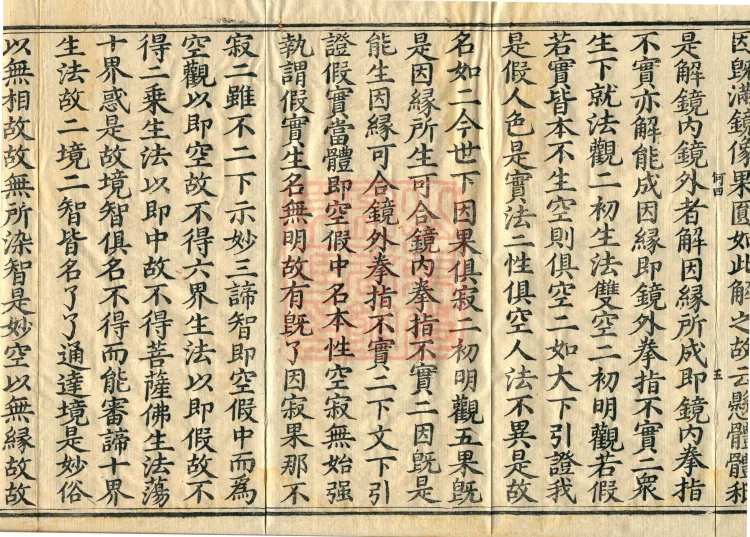 因既滿鏡像果圓如此解之故云懸體體
何四
五
是解鏡內鏡外者解因緣所成即鏡內拳指
不實亦解能成因緣即鏡外拳指不實二眾
生下就法觀二初生法雙空二初明觀若假
若實皆本不生空則俱空二如大下引證我
是假人色是實法二性俱空人法不異是故
名如二今世下因果俱寂二初明觀五果既
是因緣所生可合鏡內拳指不實二因既是
能生因緣可合鏡外拳指不實二下文下引
證假實當體即空假中名本性空寂無始強
執謂假實生名無明故有既了因寂果那不
寂二雖不二下示妙三諦智即空假中而為
空觀以即空故不得六界生法以即假故不
得二乘生法以即中故不得菩薩佛生法蕩
十界惑是故境智俱名不得而能審諦十界
生法故二境二智皆名了了通達境是妙俗
以無相故故無所染智是妙空以無緣故故